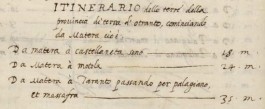 ITINERARIO delle terre della
provincia di terra d'otranto, cominciando
da Matera cioè
Da matera à castellaneta sono 18. m
Da Matera à motola 24. m.
Da Matera à Taranto passando per palagiano,
et massafra 35. m